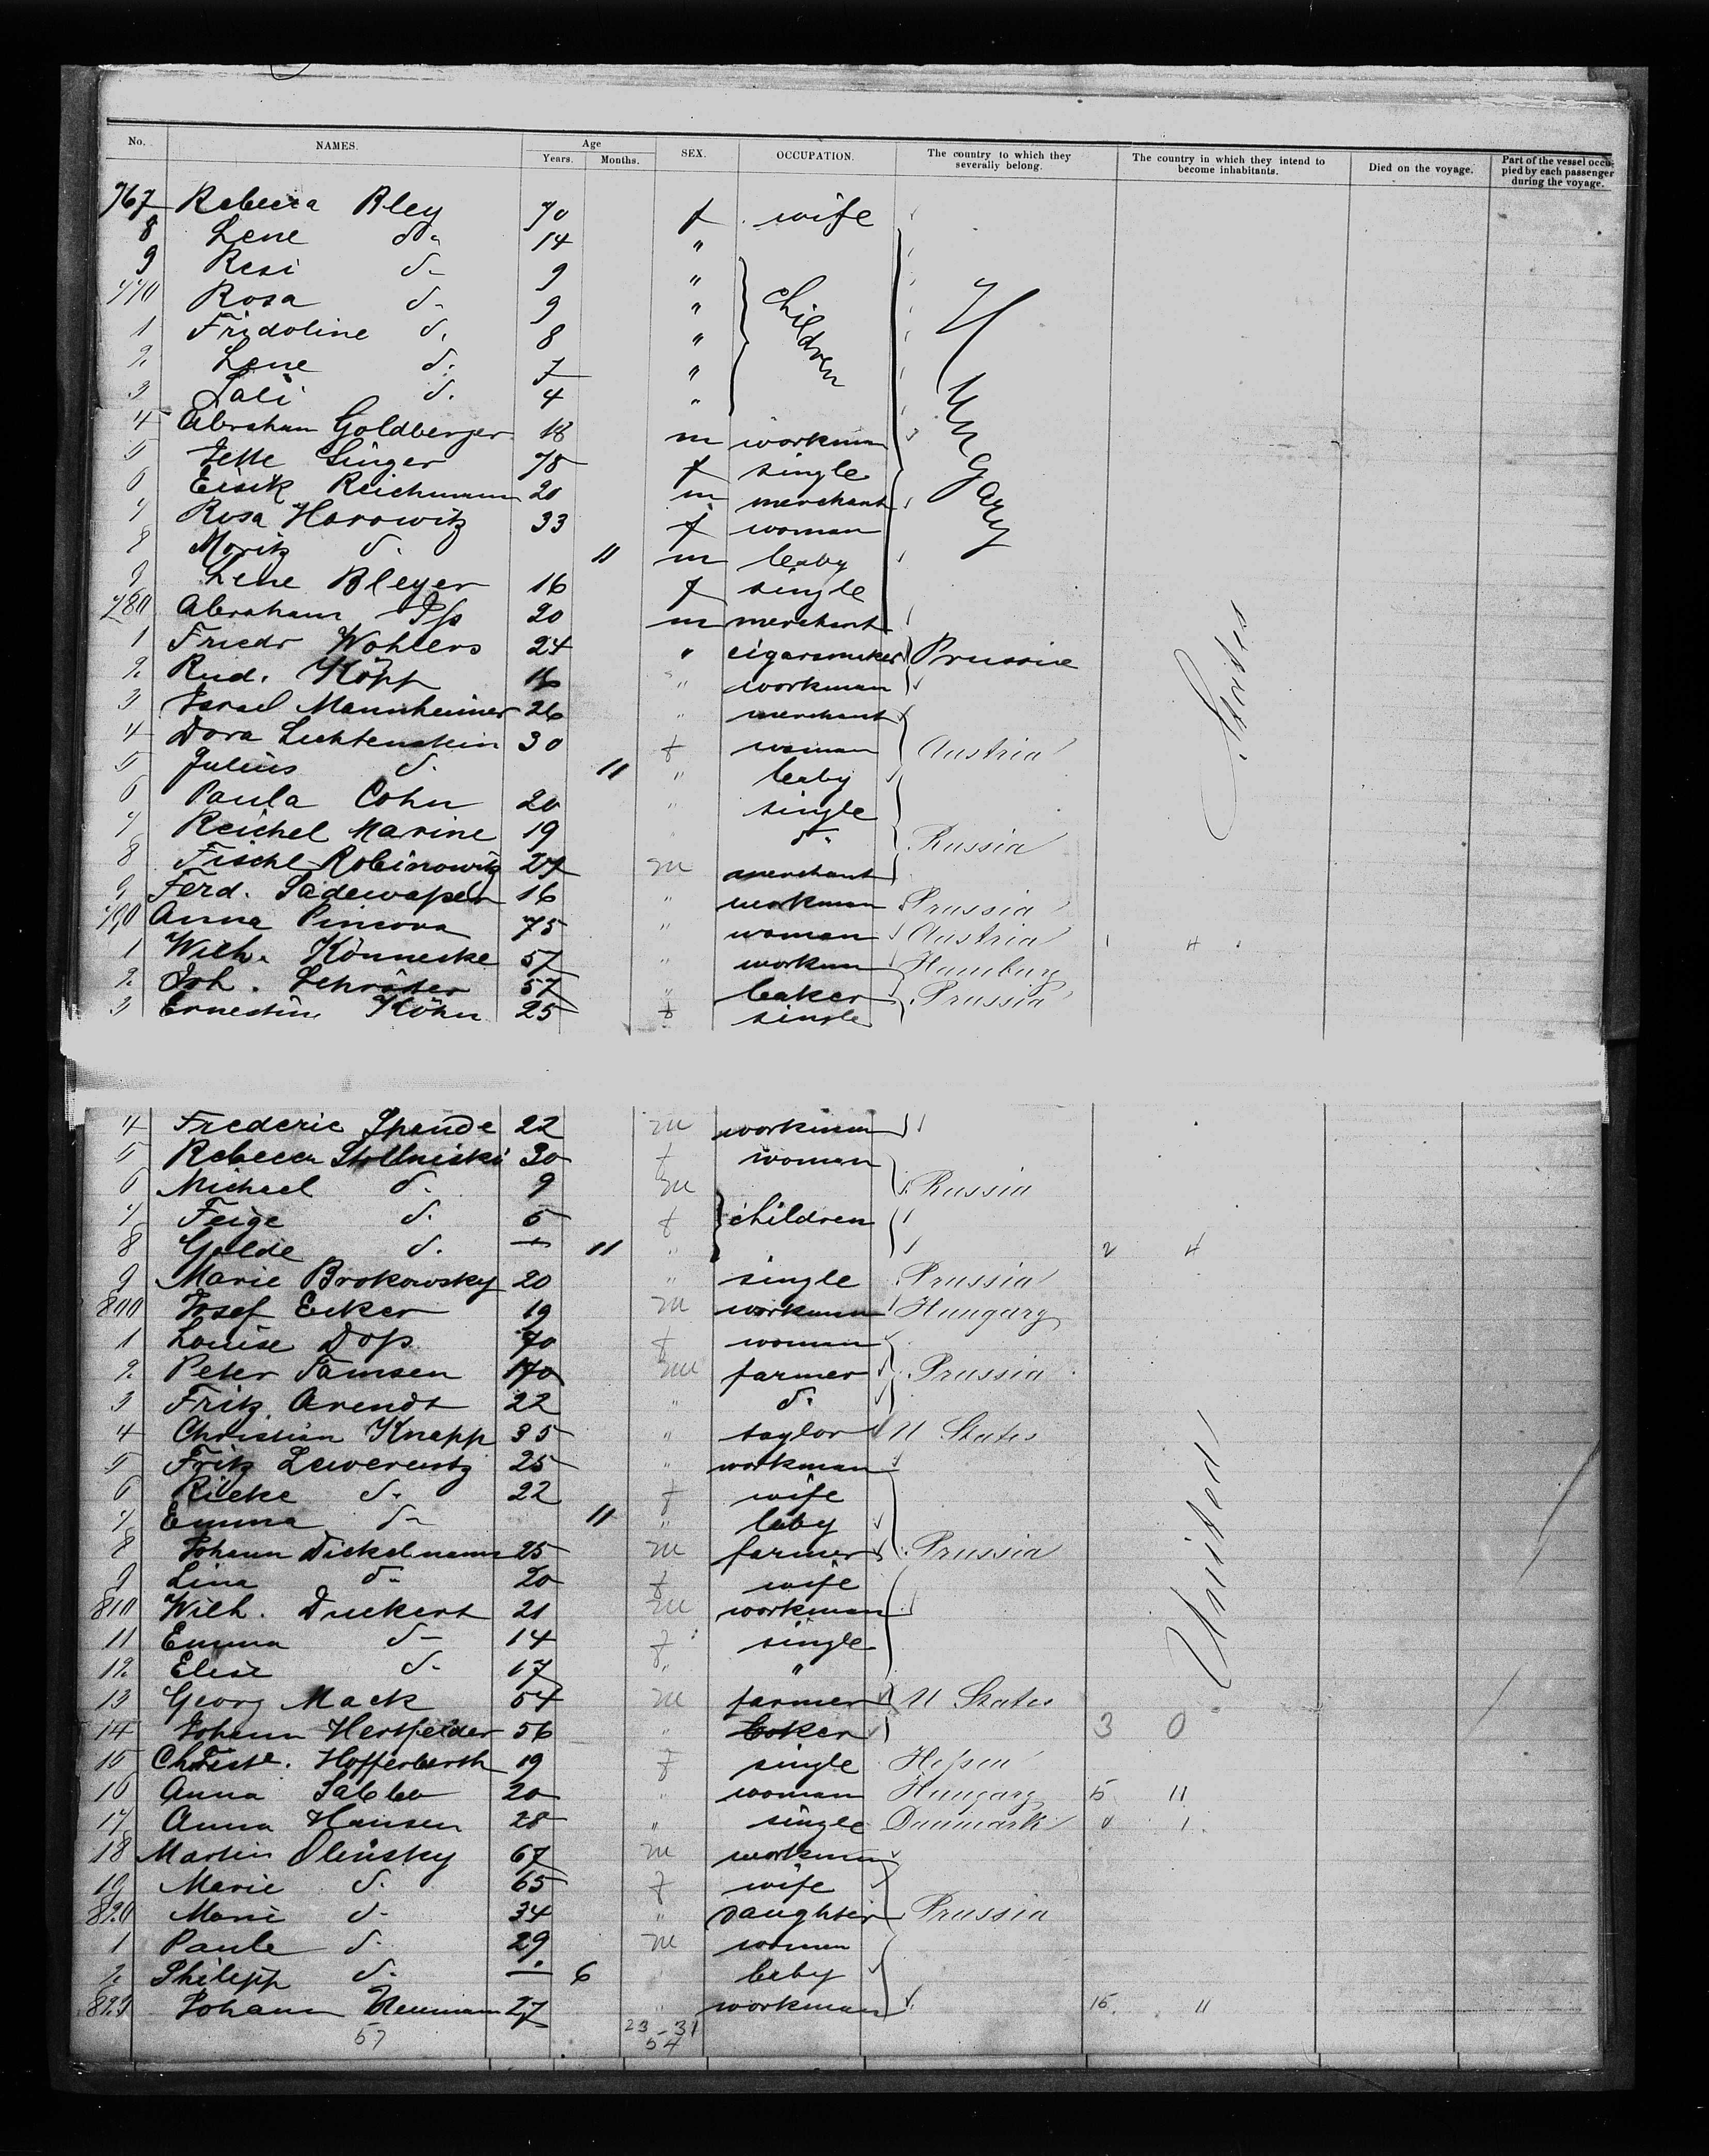 No. NAMES. Age Years. Months. SEX. OCCUPATION. The country to which they severally belong. The country in which they intend to become inhabitants. Died on the voyage. Part of the vessel occupied by each passenger during the voyage.
767 Rebecca Bley 70 f wife
8 Lene d. 14 "
9 Resi d. 9 "
770 Rosa d. 9 " Children
1 Fridoline d. 8 "
2 Lene d. 7 "
3 Sali d. 4 " Hungary
4 Abraham Goldberger 18 m workman
5 Jette Singer 78 f single
6 Eisik Reichmann 20 m merchant
7 Rosa Horowitz 33 f woman
8 Moritz d. 11 m baby
9 Lene Bleyer 16 f single
780 Abraham 20 m merchant
1 Friedr Wohlers 24 " cigarsmaker Prussia
2 Rud. Köpp 16 " workman
3 Israel Mannheimer 26 " merchant
4 Dora Lichtenstein 30 f woman Austria
5 Julius d. 11 " baby
6 Paula Cohn 20 " single
7 Reichel Marine 19 " d. Russia
8 Fischl Robinowitz 27 m merchant
9 Ferd. 16 " workman Prussia
790 Anna 75 " woman Austria 1 4
1 Wilh. Könnecke 57 " workman Hamburg
2 Joh. Schröter 57 " baker Prussia
3 Ernestine Köhn 25 f single
States
4 Frederic Spende 22 m workman
5 Rebecca 30 f woman
6 Michael d. 9 m Russia
7 Feige d. 5 f children
8 Golde d. — 11 " 2 4
9 Marie Brokowsky 20 " single Prussia
800 Josef Ecker 19 m workman Hungary
1 Louise Dop 70 f woman
2 Peter Tamsen 170 m farmer Prussia
3 Fritz Arendt 22 " d.
4 Christian Knapp 35 " taylor U States
5 Fritz Lewerentz 25 " workman
6 Rieke d. 22 f wife
7 Emma d. 11 " baby
8 Johann Dickelmann 25 m farmer Prussia
9 Lina d. 20 f wife
810 Wilh. Duckert 21 m workman
11 Emma d. 14 f single
12 Elise d. 17 " "
United
13 Georg Mack 54 m farmer U States
14 Johann Hertfelder 56 " baker 3 0
15 Christe. Hofferberth 19 f single Hessen
16 Anna 20 " woman Hungary 5 11
17 Anna Hansen 28 " single Danmark 0 1
18 Martin Olinsky 67 m workman
19 Marie d. 65 f wife
820 Marie d. 34 " daughter Prussia
1 Paule d. 29 m woman
2 Philipp d. — 6 " baby
823 Johann Neumann 27 " workman 15 11
57 23-31
54